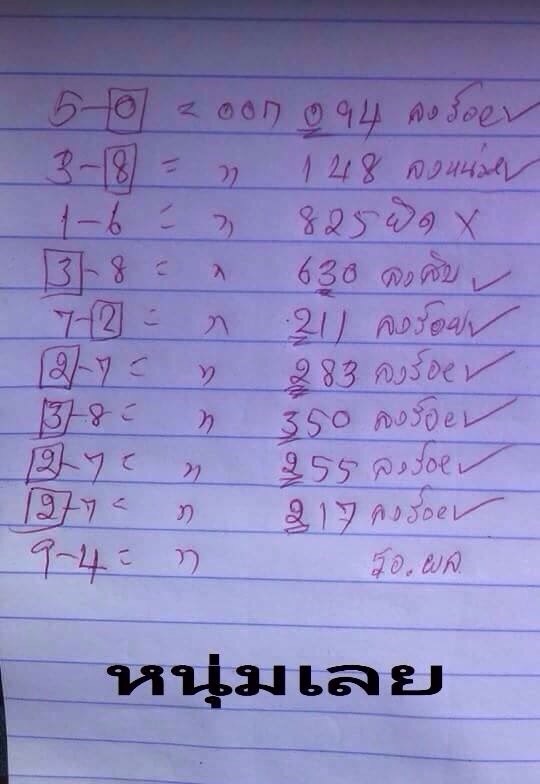 5-0 = ออก 094 ลงร้อย✓
3-8 = " 148 ลงหน่วย✓
1-6 = " 825 ผิด ×
3-8 = " 630 ลงสิบ ✓
7-2 = " 211 ลงร้อย✓
2-7 = " 283 ลงร้อย✓
3-8 = " 350 ลงร้อย✓
2-7 = " 255 ลงร้อย✓
2-7 = " 217 ลงร้อย✓
9-4 = " รอ.ผล.
หนุ่มเลย